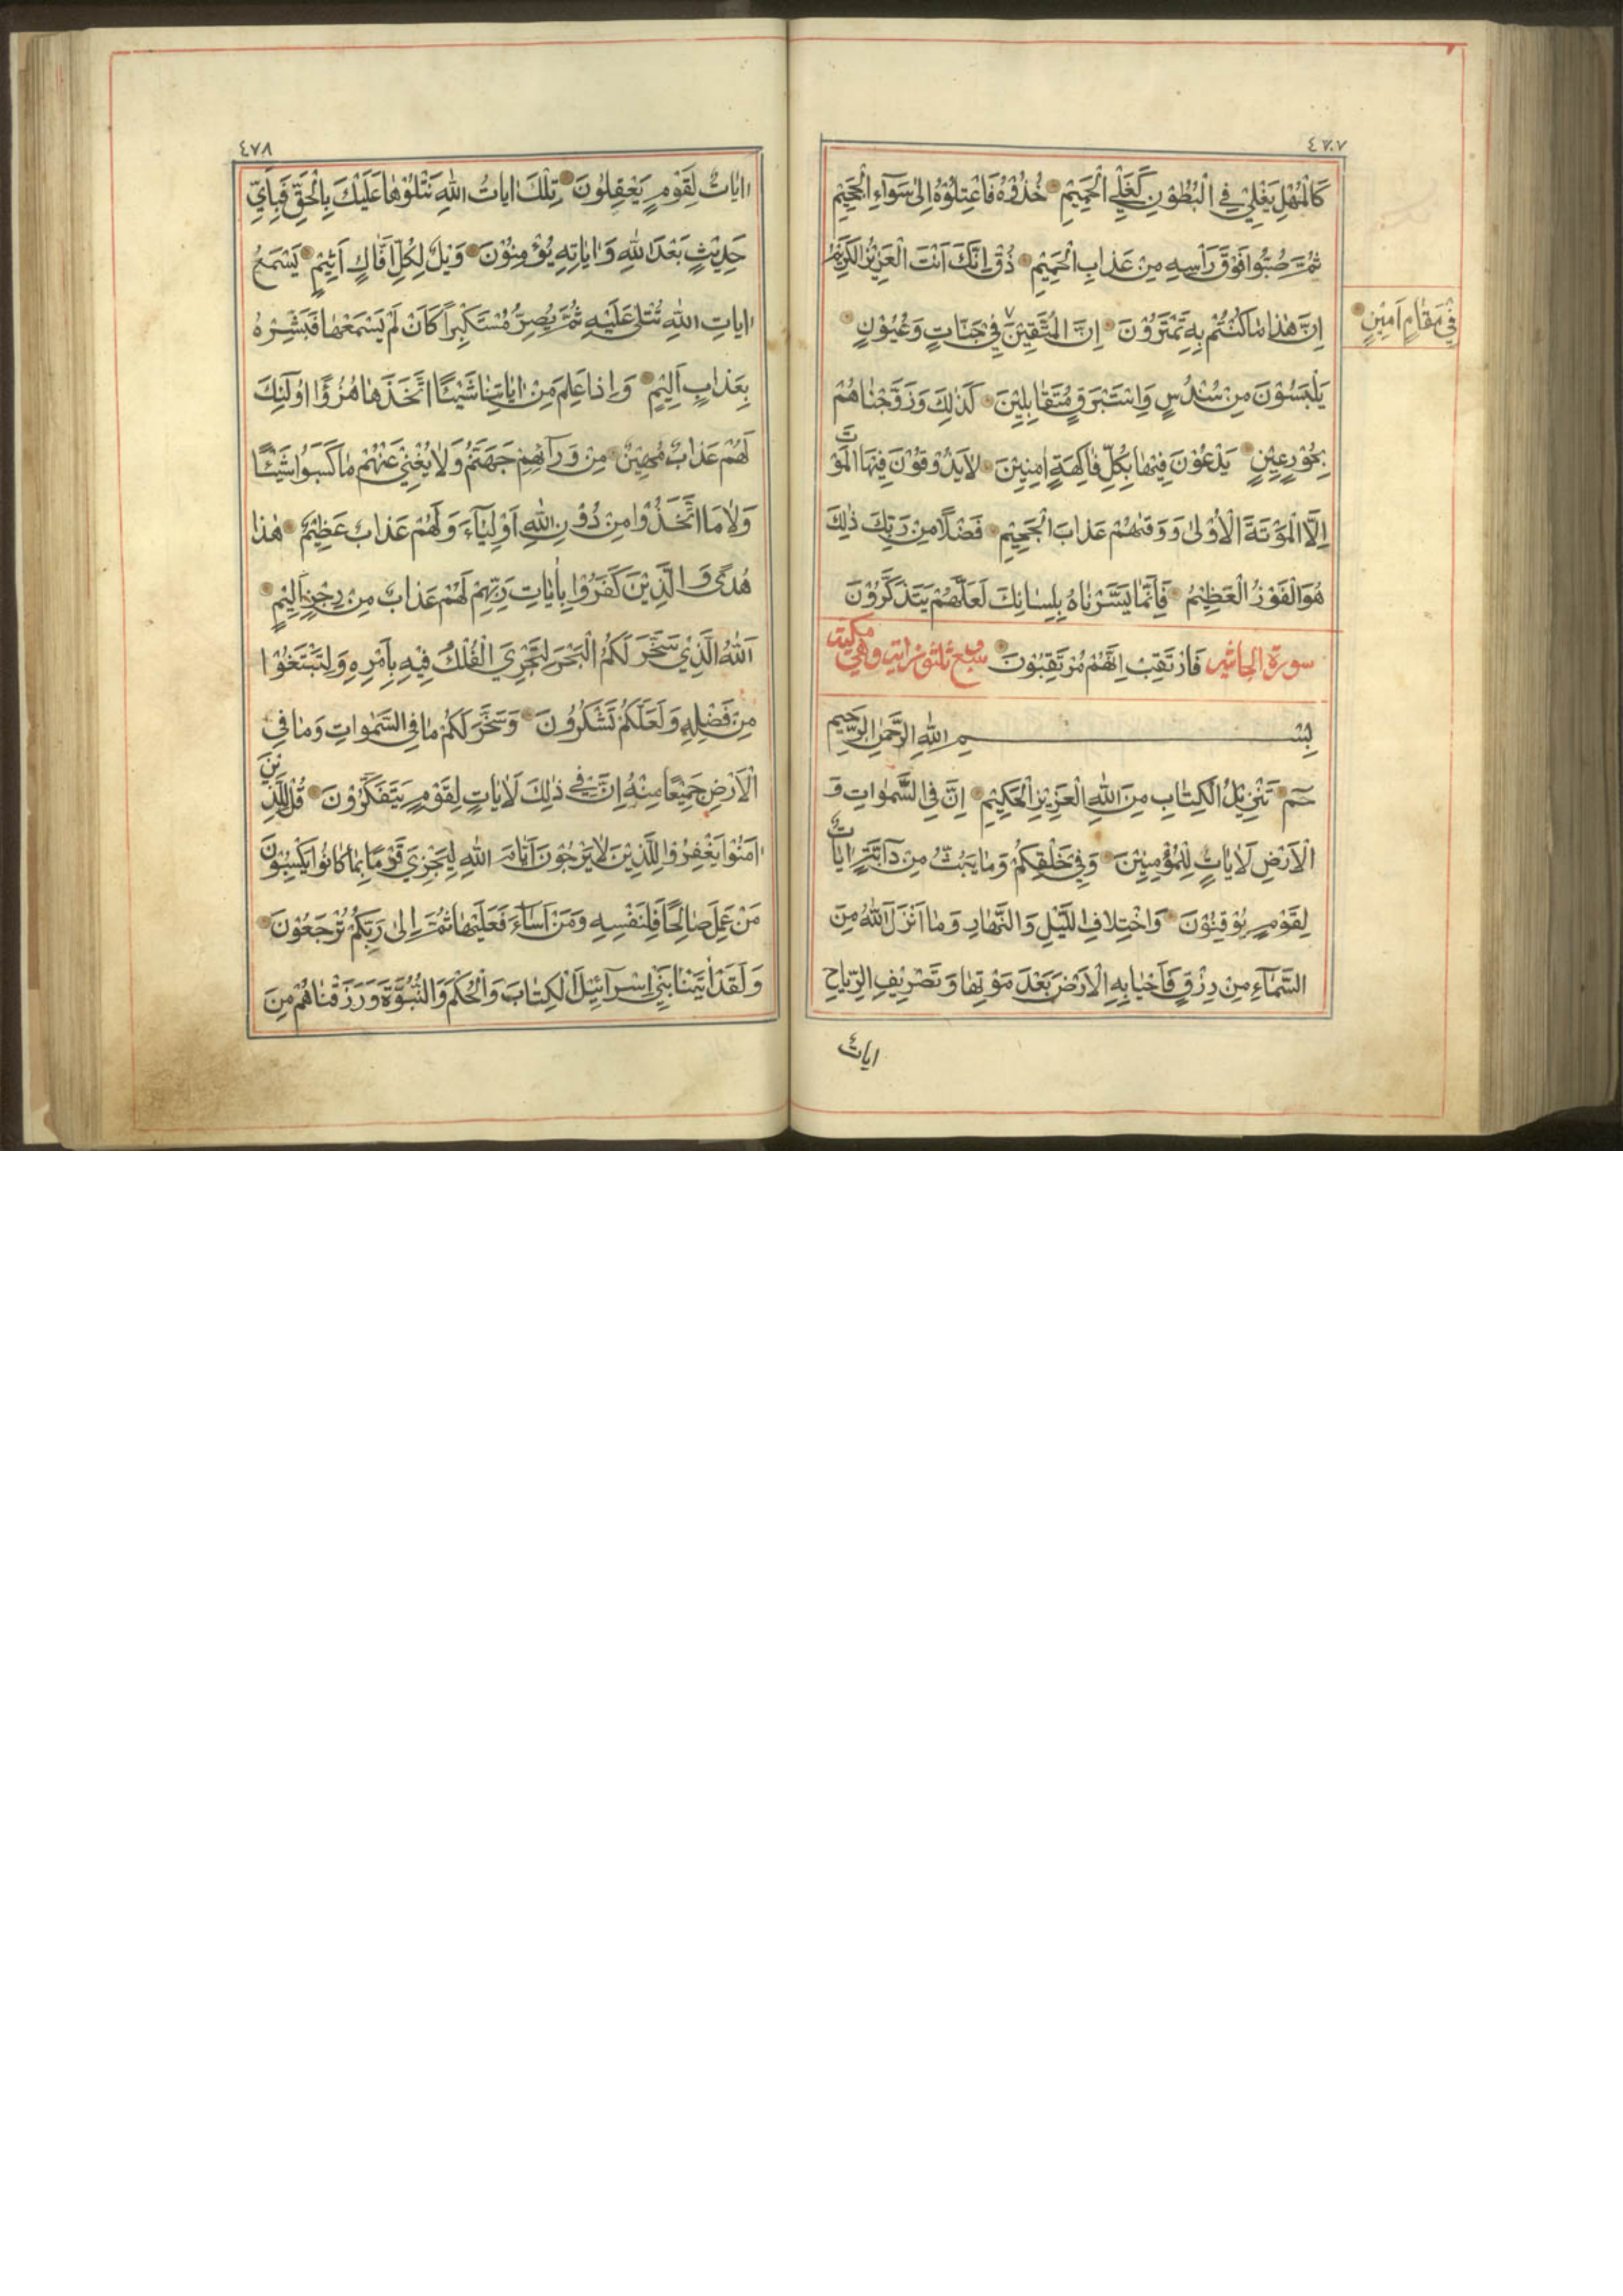 ٤٧٧
كَالْمُهْلِ يَغْلِيْ فِي الْبُطُوْنِ كَغَلْيِ الْحَمِيْمِ خُذُوْهُ فَاعْتِلُوْهُ اِلٰى سَوَآءِ الْجَحِيْمِ
ثُمَّ صُبُّوْا فَوْقَ رَاْسِهِ مِنْ عَذَابِ الْحَمِيْمِ ذُقْ اِنَّكَ اَنْتَ الْعَزِيْزُ الْكَرِيْمُ
اِنَّ هٰذَا مَا كُنْتُمْ بِهِ تَمْتَرُوْنَ اِنَّ الْمُتَّقِيْنَ ٧ فِيْ جَنَّاتٍ وَعُيُوْنٍ
فِيْ مَقَامٍ اَمِيْنٍ
يَلْبَسُوْنَ مِنْ سُنْدُسٍ وَاِسْتَبْرَقٍ مُتَقَابِلِيْنَ كَذٰلِكَ وَزَوَّجْنَاهُمْ
بِحُوْرٍ عِيْنٍ يَدْعُوْنَ فِيْهَا بِكُلِّ فَاكِهَةٍ اٰمِنِيْنَ لَا يَذُوْقُوْنَ فِيْهَا الْمَوْتَ
اِلَّا الْمَوْتَةَ الْاُوْلٰى وَوَقٰهُمْ عَذَابَ الْجَحِيْمِ فَضْلًا مِنْ رَبِّكَ ذٰلِكَ
هُوَ الْفَوْزُ الْعَظِيْمُ فَاِنَّمَا يَسَّرْنَاهُ بِلِسَانِكَ لَعَلَّهُمْ يَتَذَكَّرُوْنَ
سورة الجاثية فَارْتَقِبْ اِنَّهُمْ مُرْتَقِبُوْنَ سبع ثلثون اية وهي مكية
بِسْــــمِ اللهِ الرَّحْمٰنِ الرَّحِيمِ
حٰمٓ تَنْزِيْلُ الْكِتَابِ مِنَ اللهِ الْعَزِيْزِ الْحَكِيْمِ اِنَّ فِي السَّمٰوَاتِ وَ
الْاَرْضِ لَاٰيَاتٍ لِلْمُؤْمِنِيْنَ وَفِيْ خَلْقِكُمْ وَمَا يَبُثُّ مِنْ دَآبَّةٍ اٰيَاتٌ
لِقَوْمٍ يُوْقِنُوْنَ وَاخْتِلَافِ اللَّيْلِ وَالنَّهَارِ وَمَا اَنْزَلَ اللهُ مِنَ
السَّمَآءِ مِنْ رِزْقٍ فَاَحْيَا بِهِ الْاَرْضَ بَعْدَ مَوْتِهَا وَتَصْرِيْفِ الرِّيَاحِ
ايات
٤٧٨
اٰيَاتٌ لِقَوْمٍ يَعْقِلُوْنَ تِلْكَ اٰيَاتُ اللهِ نَتْلُوْهَا عَلَيْكَ بِالْحَقِّ فَبِاَيِّ
حَدِيْثٍ بَعْدَ اللهِ وَاٰيَاتِهِ يُؤْمِنُوْنَ وَيْلٌ لِكُلِّ اَفَّاكٍ اَثِيْمٍ يَسْمَعُ
اٰيَاتِ اللهِ تُتْلٰى عَلَيْهِ ثُمَّ يُصِرُّ مُسْتَكْبِرًا كَاَنْ لَمْ يَسْمَعْهَا فَبَشِّرْهُ
بِعَذَابٍ اَلِيْمٍ وَاِذَا عَلِمَ مِنْ اٰيَاتِنَا شَيْئًا اتَّخَذَهَا هُزُوًا اُولٰئِكَ
لَهُمْ عَذَابٌ مُهِيْنٌ مِنْ وَرَآئِهِمْ جَهَنَّمُ وَلَا يُغْنِيْ عَنْهُمْ مَا كَسَبُوْا شَيْئًا
وَلَا مَا اتَّخَذُوْا مِنْ دُوْنِ اللهِ اَوْلِيَآءَ وَلَهُمْ عَذَابٌ عَظِيْمٌ هٰذَا
هُدًى وَالَّذِيْنَ كَفَرُوْا بِاٰيَاتِ رَبِّهِمْ لَهُمْ عَذَابٌ مِنْ رِجْزٍ اَلِيْمٍ
اَللهُ الَّذِيْ سَخَّرَ لَكُمُ الْبَحْرَ لِتَجْرِيَ الْفُلْكُ فِيْهِ بِاَمْرِهِ وَلِتَبْتَغُوْا
مِنْ فَضْلِهِ وَلَعَلَّكُمْ تَشْكُرُوْنَ وَسَخَّرَ لَكُمْ مَا فِي السَّمٰوَاتِ وَمَا فِي
الْاَرْضِ جَمِيْعًا مِنْهُ اِنَّ فِيْ ذٰلِكَ لَاٰيَاتٍ لِقَوْمٍ يَتَفَكَّرُوْنَ قُلْ لِلَّذِيْنَ
اٰمَنُوْا يَغْفِرُوْا لِلَّذِيْنَ لَا يَرْجُوْنَ اَيَّامَ اللهِ لِيَجْزِيَ قَوْمًا بِمَا كَانُوْا يَكْسِبُوْنَ
مَنْ عَمِلَ صَالِحًا فَلِنَفْسِهِ وَمَنْ اَسَآءَ فَعَلَيْهَا ثُمَّ اِلٰى رَبِّكُمْ تُرْجَعُوْنَ
وَلَقَدْ اٰتَيْنَا بَنِيْ اِسْرَآئِيْلَ الْكِتَابَ وَالْحُكْمَ وَالنُّبُوَّةَ وَرَزَقْنَاهُمْ مِنَ